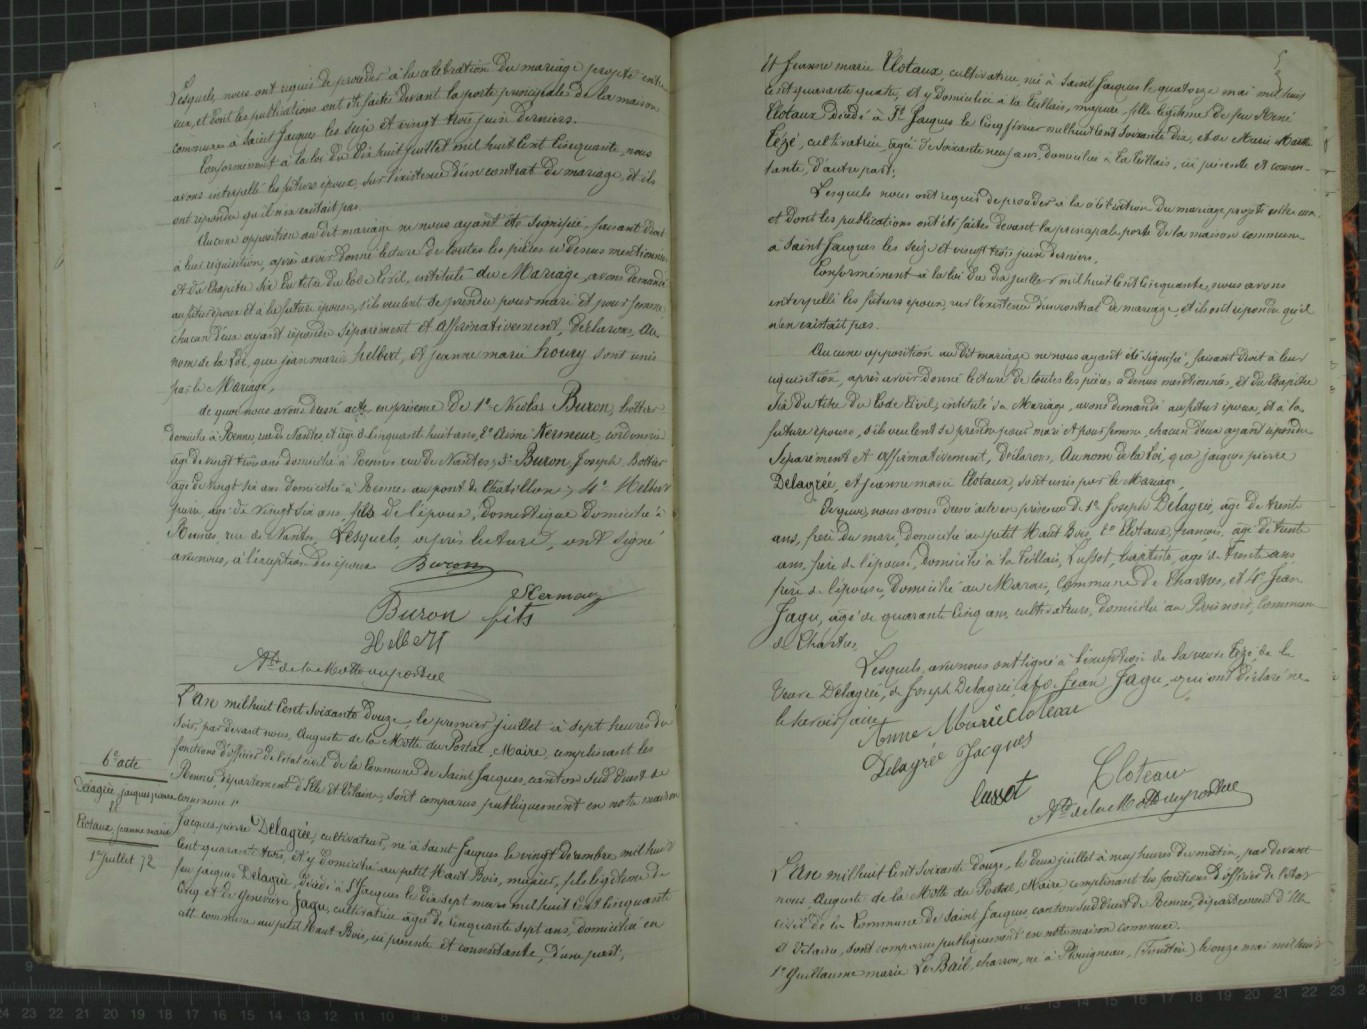 Lesquels, nous ont requis de procéder à la célébration du mariage projeté entre
eux, et dont les publications ont été faites devant la porte principale de la maison
commune à Saint Jacques les seize et vingt trois juin derniers.
Conformément à la loi du dix huit juillet mil huit cent cinquante, nous
avons interpellé les futurs époux, sur l'existence d'un contrat de mariage, et ils
ont répondu qu'il n'en existait pas.
Aucune opposition au dit mariage ne nous ayant été signifiée, faisant droit
à leur réquisition, après avoir donné lecture de toutes les pièces ci dessus mentionnées
et du Chapitre six du titre du Code Civil, intitulé du Mariage, avons demandé
au futur époux et à la future épouse, s'ils veulent se prendre pour mari et pour femme,
chacun d'eux ayant répondu séparément et affirmativement, déclarons, au
nom de la loi, que jean marie helbert, et jeanne marie houry sont unis
par le Mariage,
de quoi nous avons dressé acte en présence de 1° Nicolas Buron, bottier
domicilié à Rennes, rue de Nantes et âgé de cinquante huit ans, 2° Aimé Hermeur, cordonnier
âgé de vingt trois ans domicilié à Rennes rue de Nantes, 3° Buron, Joseph, Bottier
âgé de vingt six ans domicilié à Rennes au pont de Chatillon, 4° Helbert
pierre, âgé de vingt six ans, fils de l'époux, domestique domicilié à
Rennes, rue de Nantes, Lesquels, après lecture, ont signé
avec nous, à l'exception des époux. Buron
Hermeur
Buron fils
Helbert
Ate de la Motte du portal
L'An mil huit cent soixante douze, le premier juillet à sept heures du
soir, par devant nous, Auguste de la Motte du Portal, Maire, remplissant les
fonctions d'officier de l'état civil de la Commune de Saint Jacques, canton Sud Ouest de
6e acte
Rennes, département d'Ille et Vilaine, sont comparus publiquement en notre maison
Delagrée, jacques pierre
commune 1°
et
Clotaux, jeanne marie
Jacques pierre Delagrée, cultivateur, né à Saint Jacques le vingt décembre mil huit
1er juillet 72
cent quarante trois, et y domicilié au petit Haut Bois, majeur, fils légitime de
feu jacques Delagrée, décédé à St Jacques le dix sept mars mil huit cent cinquante
cinq et de Geneviève Jagu, cultivatrice âgée de cinquante sept ans, domiciliée en
cette commune au petit Haut Bois, ici présente et consentante, d'une part;
5
Et Jeanne marie Clotaux, cultivatrice, née à Saint Jacques le quatorze mai mil huit
cent quarante quatre, et y domiciliée à la Teillais, majeure, fille légitime de feu René
Clotaux décédé à St Jacques le cinq février mil huit cent soixante dix, et de Marie Marthe
Tézé, cultivatrice, âgée de soixante neuf ans, domiciliée à la Teillais, ici présente et consen-
tante, d'autre part;
Lesquels nous ont requis de procéder à la célébration du mariage projeté entre eux,
et dont les publications ont été faites devant la principale porte de la maison commune
à Saint Jacques les seize et vingt trois juin derniers.
Conformément à la loi du dix juillet mil huit cent cinquante, nous avons
interpellé les futurs époux, sur l'existence d'un contrat de mariage et ils ont répondu qu'il
n'en existait pas.
Aucune opposition au dit mariage ne nous ayant été signifiée, faisant droit à leur
réquisition, après avoir donné lecture de toutes les pièces ci dessus mentionnées, et du Chapitre
six du titre du Code Civil, intitulé du Mariage, avons demandé au futur époux, et à la
future épouse, s'ils veulent se prendre pour mari et pour femme, chacun d'eux ayant répondu
séparément et affirmativement, déclarons, au nom de la loi, que jacques pierre
Delagrée, et Jeanne marie Clotaux, sont unis par le Mariage,
De quoi, nous avons dressé acte en présence de 1° Joseph Delagrée, âgé de trente
ans, frère du mari, domicilié au petit Haut Bois, 2° Clotaux, françois, âgé de trente
ans, frère de l'épouse, domicilié à la Teillais, Lussot, baptiste, âgé de trente ans
frère de l'épouse, domicilié au Marais, Commune de Chartres, et 4° Jean
Jagu, âgé de quarante cinq ans, cultivateurs, domicilié au Boisnoir, Commune
de Chartres,
Lesquels, avec nous ont signé à l'exception de la veuve Tézé, de la
Veuve Delagrée, de Joseph Delagrée, et de Jean Jagu, qui ont déclaré ne
le savoir faire.
Anne Marie Cloteau
Delagrée Jacques
Cloteau
Lussot
Ate de la Motte du portal
L'An mil huit cent soixante douze, le deux juillet à neuf heures du matin, par devant
nous, Auguste de la Motte du Portal, Maire remplissant les fonctions d'officier de l'état
civil de la Commune de Saint Jacques, canton sud Ouest de Rennes, département d'Ille
et Vilaine, sont comparus publiquement en notre maison commune.
1° Guillaume marie Le Bail, charron, né à Plouigneau, (Finistère) le onze mai mil huit